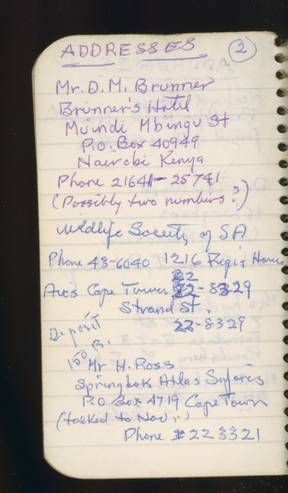 ADDRESSES 2
Mr. D. M. Brunner
Brunner's Hotel
Muindi Mbingu St
P.O. Box 40949
Nairobi Kenya
Phone 21641 - 25741
(Possibly two numbers?)
Wildlife Society of SA
Phone 43-6040 1216 House
22
Cape Tower 22-8329
Strand St.
Deposit 22-8329
Mr H. Ross
Springbok Atlas Safaris
P.O Box 4719 Cape Town
(talked to Nov.)
Phone # 22 3321